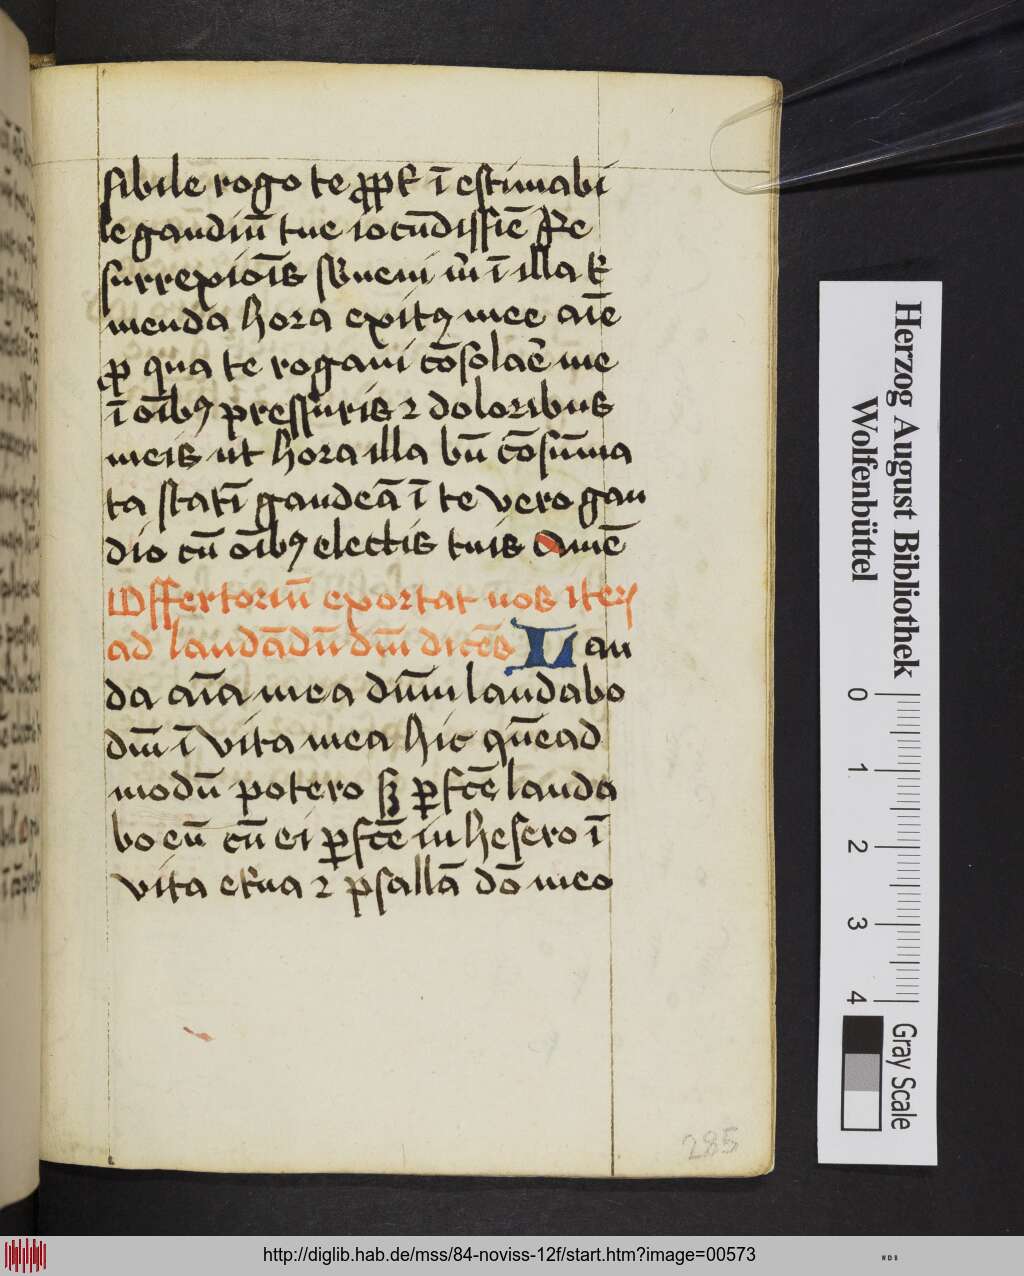 sibile rogo te ꝓpt̄ ī estimabi
le gaudiū tue iocūdissiē Re
surrexiōis subueni m̄ ī illa t̄
menda hora exitꝰ mee aīe
ꝓ qua te rogaui cōsolaē me
ī oībꝰ pressuris ⁊ doloribus
meis ut hora illa bn̄ cōsūma
ta statī gaudeā ī te vero gau
dio cū oībꝰ electis tuis Amē
Offertoriū exortat nos iteꝝ
ad laudādū dūm dicēs Lau
da aīa mea dūm laudabo
dūm ī vita mea hic quēad
modū potero sꝫ ꝑfc̄e lauda
bo eū cū ei ꝑfc̄e inhesero ī
vita et̄na ⁊ psallā dō meo
285
Herzog August Bibliothek
Wolfenbüttel
0 1 2 3 4
Gray Scale
http://diglib.hab.de/mss/84-noviss-12f/start.htm?image=00573